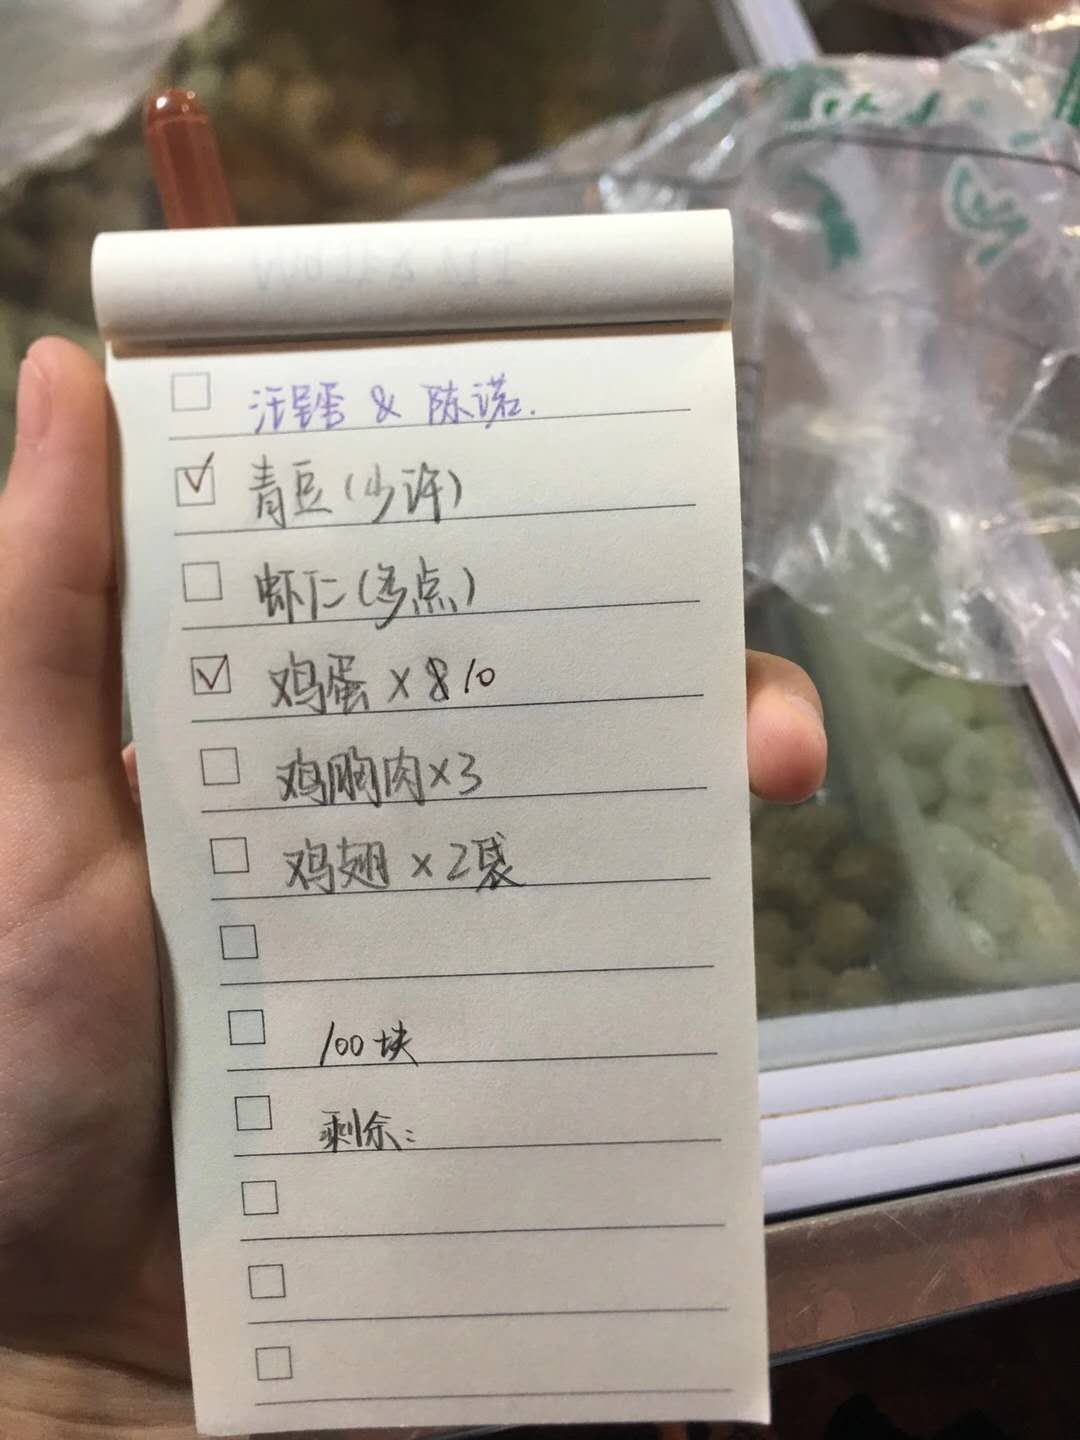 汪星蛋 & 陈诺.
青豆(少许)
虾仁(多点)
鸡蛋 × 8 10
鸡胸肉×3
鸡翅 × 2袋
100块
剩余: